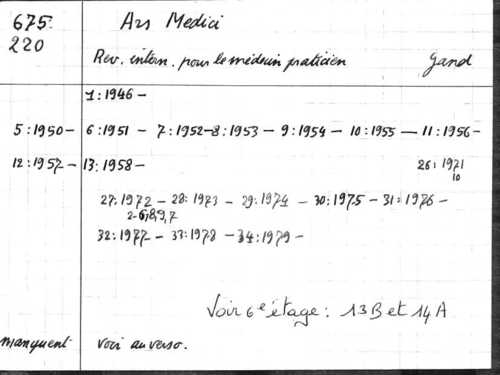 675. Ars Medici
220
Rev. intern. pour le médecin praticien Gand
1:1946 -
5:1950 - 6:1951 - 7:1952 - 8:1953 - 9:1954 - 10:1955 - 11:1956 -
12:1957 - 13:1958 - 26:1971
10
27:1972 - 28:1973 - 29:1974 - 30:1975 - 31:1976 -
32:1977 - 33:1978 - 34:1979 -
Voir 6e étage: 13B et 14A
manquent voir au verso.